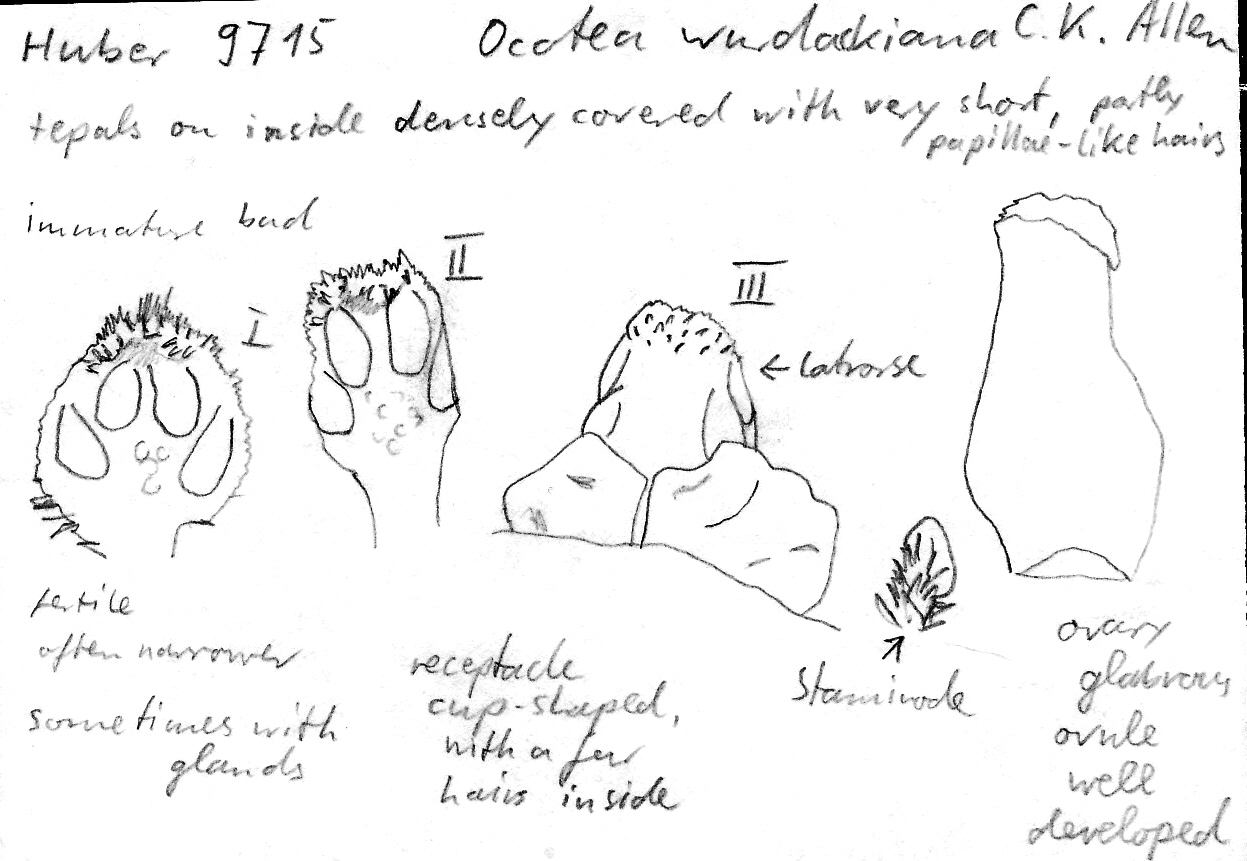 Huber 9715 Ocotea wurdackiana C.K. Allen
tepals on inside densely covered with very short, partly
papillae-like hairs
immature bud
I
II
III
← latrorse
fertile
often narrower
sometimes with
glands
receptacle
cup-shaped,
with a few
hairs inside
Staminode
ovary
glabrous
ovule
well
developed